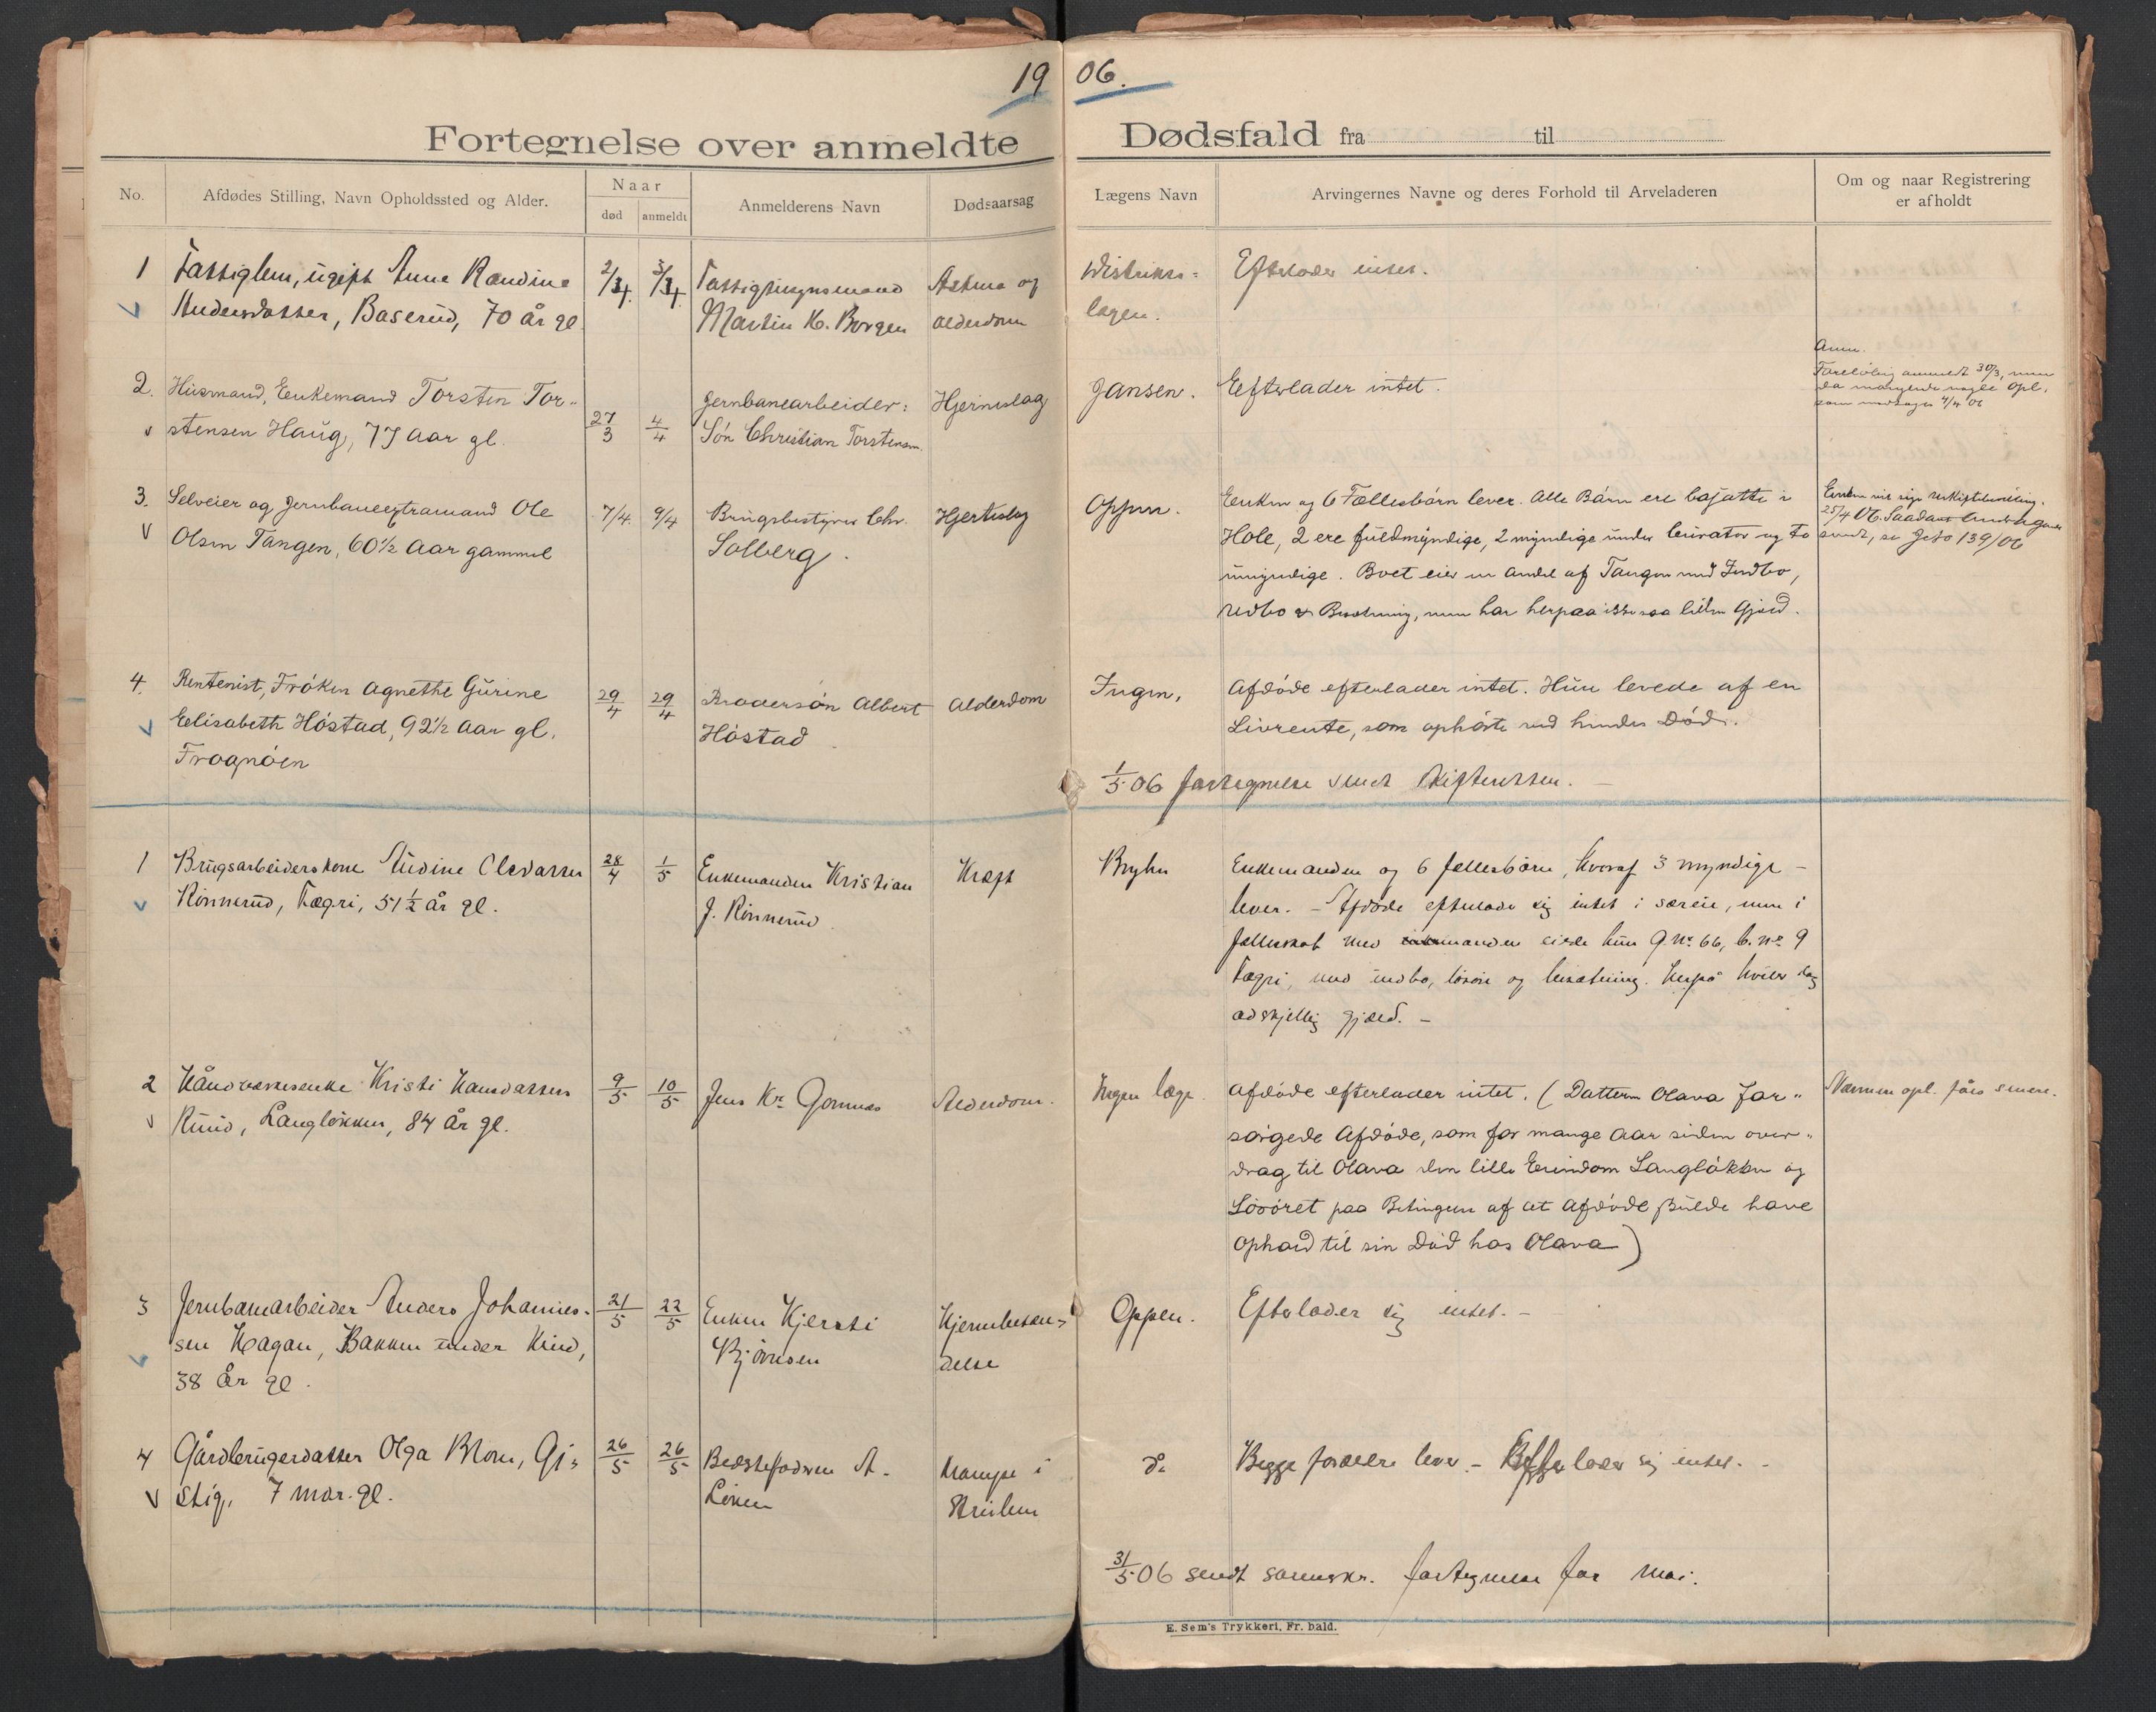 19 06.
Fortegnelse over anmeldte Dødsfald fra til
No.
Afdødes Stilling, Navn Opholdssted og Alder.
Naar
død
anmeldt
Anmelderens Navn
Dødsaarsag
Lægens Navn
Arvingernes Navne og deres Forhold til Arveladeren
Om og naar Registrering
er afholdt
1 Fattiglem, ugift Anne Randine
Andersdatter, Baserud, 70 år gl
2/4 3/4
Fattigtilsynsmand
Martin K. Borgen
Astma og
alderdom
Distrikts-
lægen.
Efterlader intet.
2. Husmand, Enkemand Torsten Tor-
stensen Haug, 77 Aar gl.
27/3 4/4
Jernbanearbeider:
Søn Christian Torstensen
Hjerneslag
Jansen.
Efterlader intet.
Anm.
Foreløbig anmeldt 30/3, men
da manglende nogle Opl.
som modtoges 4/4 06
3. Selveier og Jernbaneextramand Ole
Olsen Tangen, 60½ Aar gammel
7/4 9/4
Brugsbestyrer Chr.
Solberg.
Hjerteslag
Oppen.
Enken og 6 Fællesbørn lever. Alle Børn ere bosatte i
Hole, 2 ere fuldmyndige, 2 myndige under Curator og to
umyndige. Boet eier en Andel af Tangen med Indbo,
Udbo & Besætning, men har herpaa ikke saa liden Gjæld.
Enken vil
25/4 06. Saadant
sendt, se Jno 139/06
4. Rentenist, Frøken Agnethe Gurine
Elisabeth Høstad, 92½ Aar gl.
Frognøen
29/4 29/4
Brodersøn Albert
Høstad
Alderdom
Ingen,
Afdøde efterlader intet. Hun levede af en
Livrente, som ophørte ved hendes Død.
1/5 06 fortegnelse sendt Skifteretten. -
1 Brugsarbeiderskone Andine Olsdatter
Rønnerud, Fægri, 51½ år gl.
28/4 1/5
Enkemanden Kristian
J. Rønnerud
Kræft
Bryhn
Enkemanden og 6 fællesbørn, hvoraf 3 myndige -
lever. - Afdøde efterlader sig intet i særeie, men i
fællesskab med manden eiede hun G.Nr. 66, b.nr. 9
Fægri, med indbo, løsøre og besætning. Herpå hviler dog
adskjellig gjæld. -
2 Håndværkerenke Kristi Hansdatter
Rud, Langløkken, 84 år gl.
9/5 10/5
Jens Kr. Gomnæs
Alderdom.
Ingen læge.
Afdøde efterlader intet. (Datteren Olava for-
sørgede Afdøde, som for mange Aar siden over-
drog til Olava den lille Eiendom Langløkken og
Løsøret paa Betingelse af at Afdøde skulde have
Ophold til sin Død hos Olava)
Nærmere opl. fåes senere.
3 Jernbanearbeider Anders Johannes-
sen Hagan, Bakken under Rud,
38 år gl.
21/5 22/5
Enken Kjersti
Bjørnsen
Hjernebetæn-
delse
Oppen.
Efterlader sig intet. -
4 Gårdbrugerdatter Olga Blom, Gj-
stig, 7 mdr. gl.
26/5 26/5
Bedstefaderen A.
Løken
Krampe i
Struben
do.
Begge forældre lever. - Efterlader sig intet. -
31/5 06 sendt sorenskr. fortegnelse for mai.
E. Sem's Trykkeri, Fr. hald.